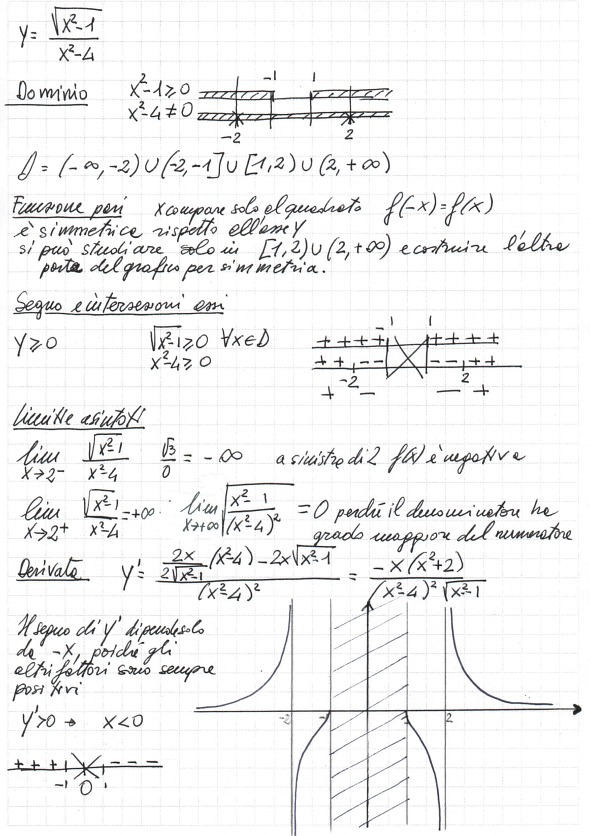 y = √(x²-1) / (x²-4)
Dominio x²-1≥0 -1 1
x²-4≠0 -2 2
D = (-∞,-2)∪(-2,-1]∪[1,2)∪(2,+∞)
Funzione pari x compare solo al quadrato f(-x)=f(x)
è simmetrica rispetto all'asse Y
si può studiare solo in [1,2)∪(2,+∞) e costruire l'altra
parte del grafico per simmetria.
Segno e intersezioni assi
Y≥0 √(x²-1)≥0 ∀x∈D -1 1 ++++ ++++
x²-4≥0 ++-- --++
-2 2
+ - - +
Limiti e asintoti
lim x→2⁻ √(x²-1)/(x²-4) √3/0 = -∞ a sinistra di 2 f(x) è negativa
lim x→2⁺ √(x²-1)/(x²-4) = +∞ lim x→+∞ √((x²-1)/(x²-4)²) = 0 perché il denominatore ha
grado maggiore del numeratore
Derivata y' = (2x/(2√(x²-1)) (x²-4) - 2x√(x²-1)) / (x²-4)² = -x(x²+2) / ((x²-4)² √(x²-1))
Il segno di y' dipende solo
da -x, poiché gli
altri fattori sono sempre
positivi
y'>0 → x<0
-2 -1 1 2
+++ ---
-1 0 1